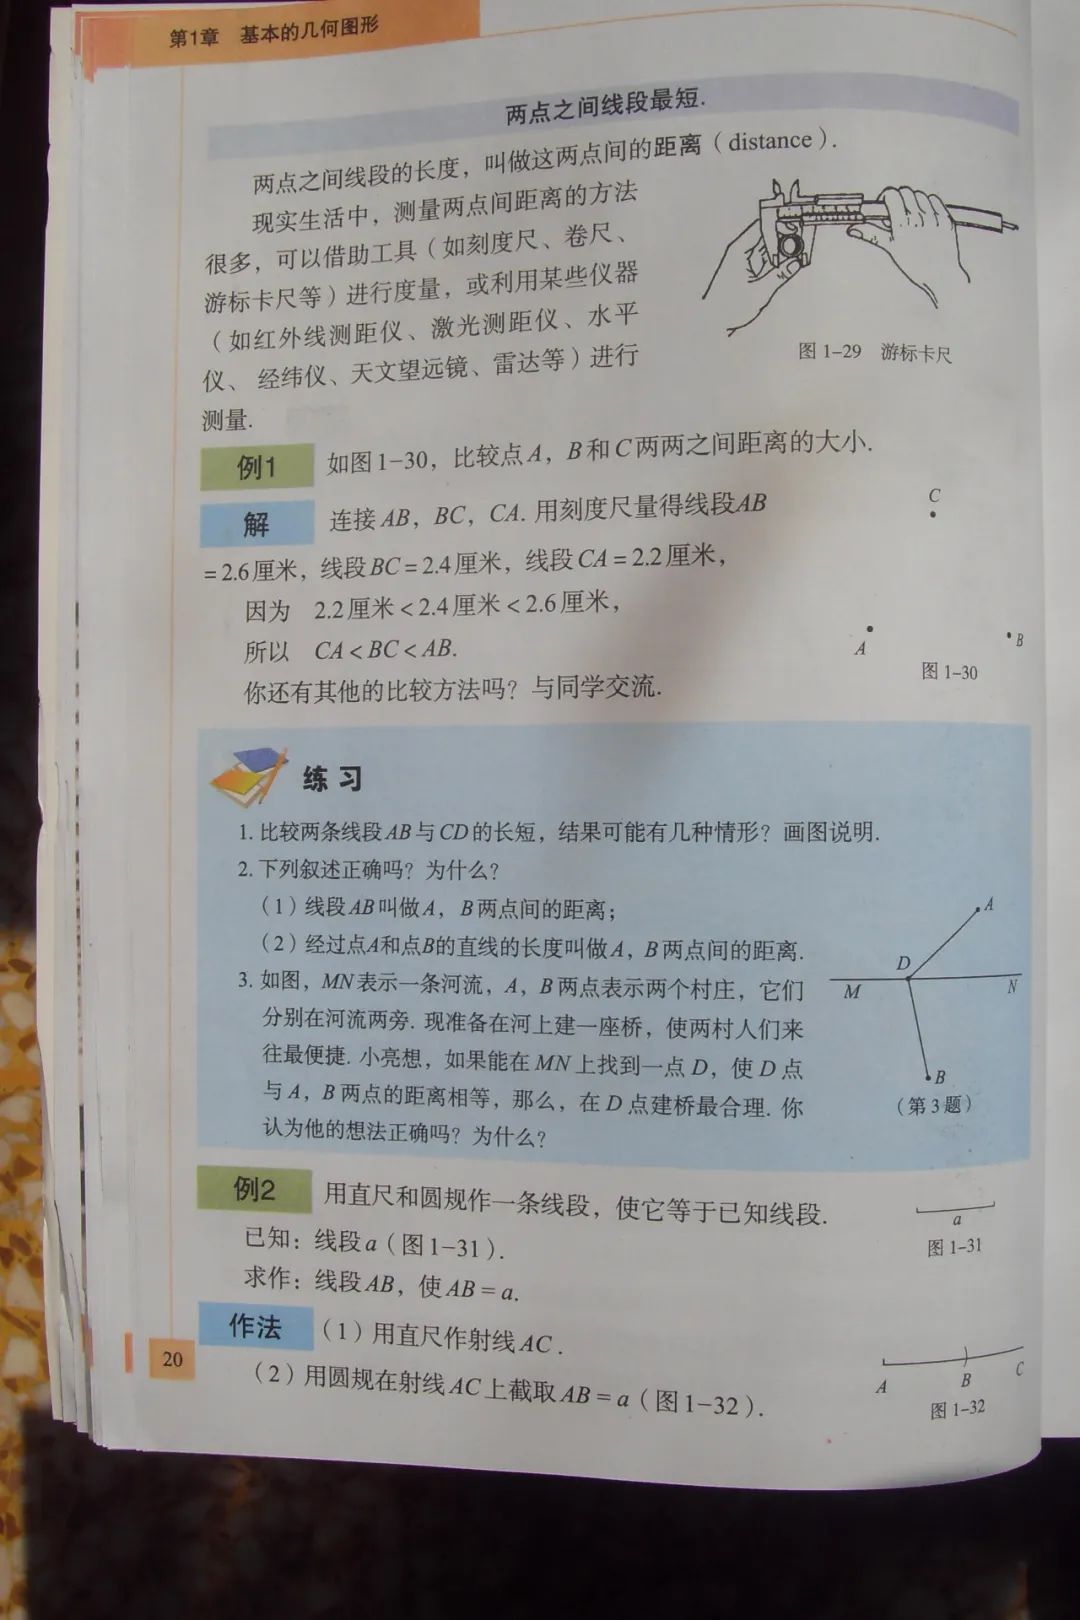 第1章 基本的几何图形
两点之间线段最短.
两点之间线段的长度，叫做这两点间的距离（distance）.
现实生活中，测量两点间距离的方法
很多，可以借助工具（如刻度尺、卷尺、
游标卡尺等）进行度量，或利用某些仪器
（如红外线测距仪、激光测距仪、水平
仪、经纬仪、天文望远镜、雷达等）进行
测量.
图 1-29 游标卡尺
例1 如图1-30，比较点A，B和C两两之间距离的大小.
解 连接AB，BC，CA. 用刻度尺量得线段AB
=2.6厘米，线段BC=2.4厘米，线段CA=2.2厘米，
因为 2.2厘米<2.4厘米<2.6厘米，
所以 CA<BC<AB.
你还有其他的比较方法吗？与同学交流.
C
A
B
图 1-30
练习
1. 比较两条线段AB与CD的长短，结果可能有几种情形？画图说明.
2. 下列叙述正确吗？为什么？
（1）线段AB叫做A，B两点间的距离；
（2）经过点A和点B的直线的长度叫做A，B两点间的距离.
3. 如图，MN表示一条河流，A，B两点表示两个村庄，它们
分别在河流两旁. 现准备在河上建一座桥，使两村人们来
往最便捷. 小亮想，如果能在MN上找到一点D，使D点
与A，B两点的距离相等，那么，在D点建桥最合理. 你
认为他的想法正确吗？为什么？
A
D
M
N
B
（第3题）
例2 用直尺和圆规作一条线段，使它等于已知线段.
已知：线段a（图1-31）.
求作：线段AB，使AB=a.
a
图 1-31
作法 （1）用直尺作射线AC.
（2）用圆规在射线AC上截取AB=a（图1-32）.
A
B
C
图 1-32
20